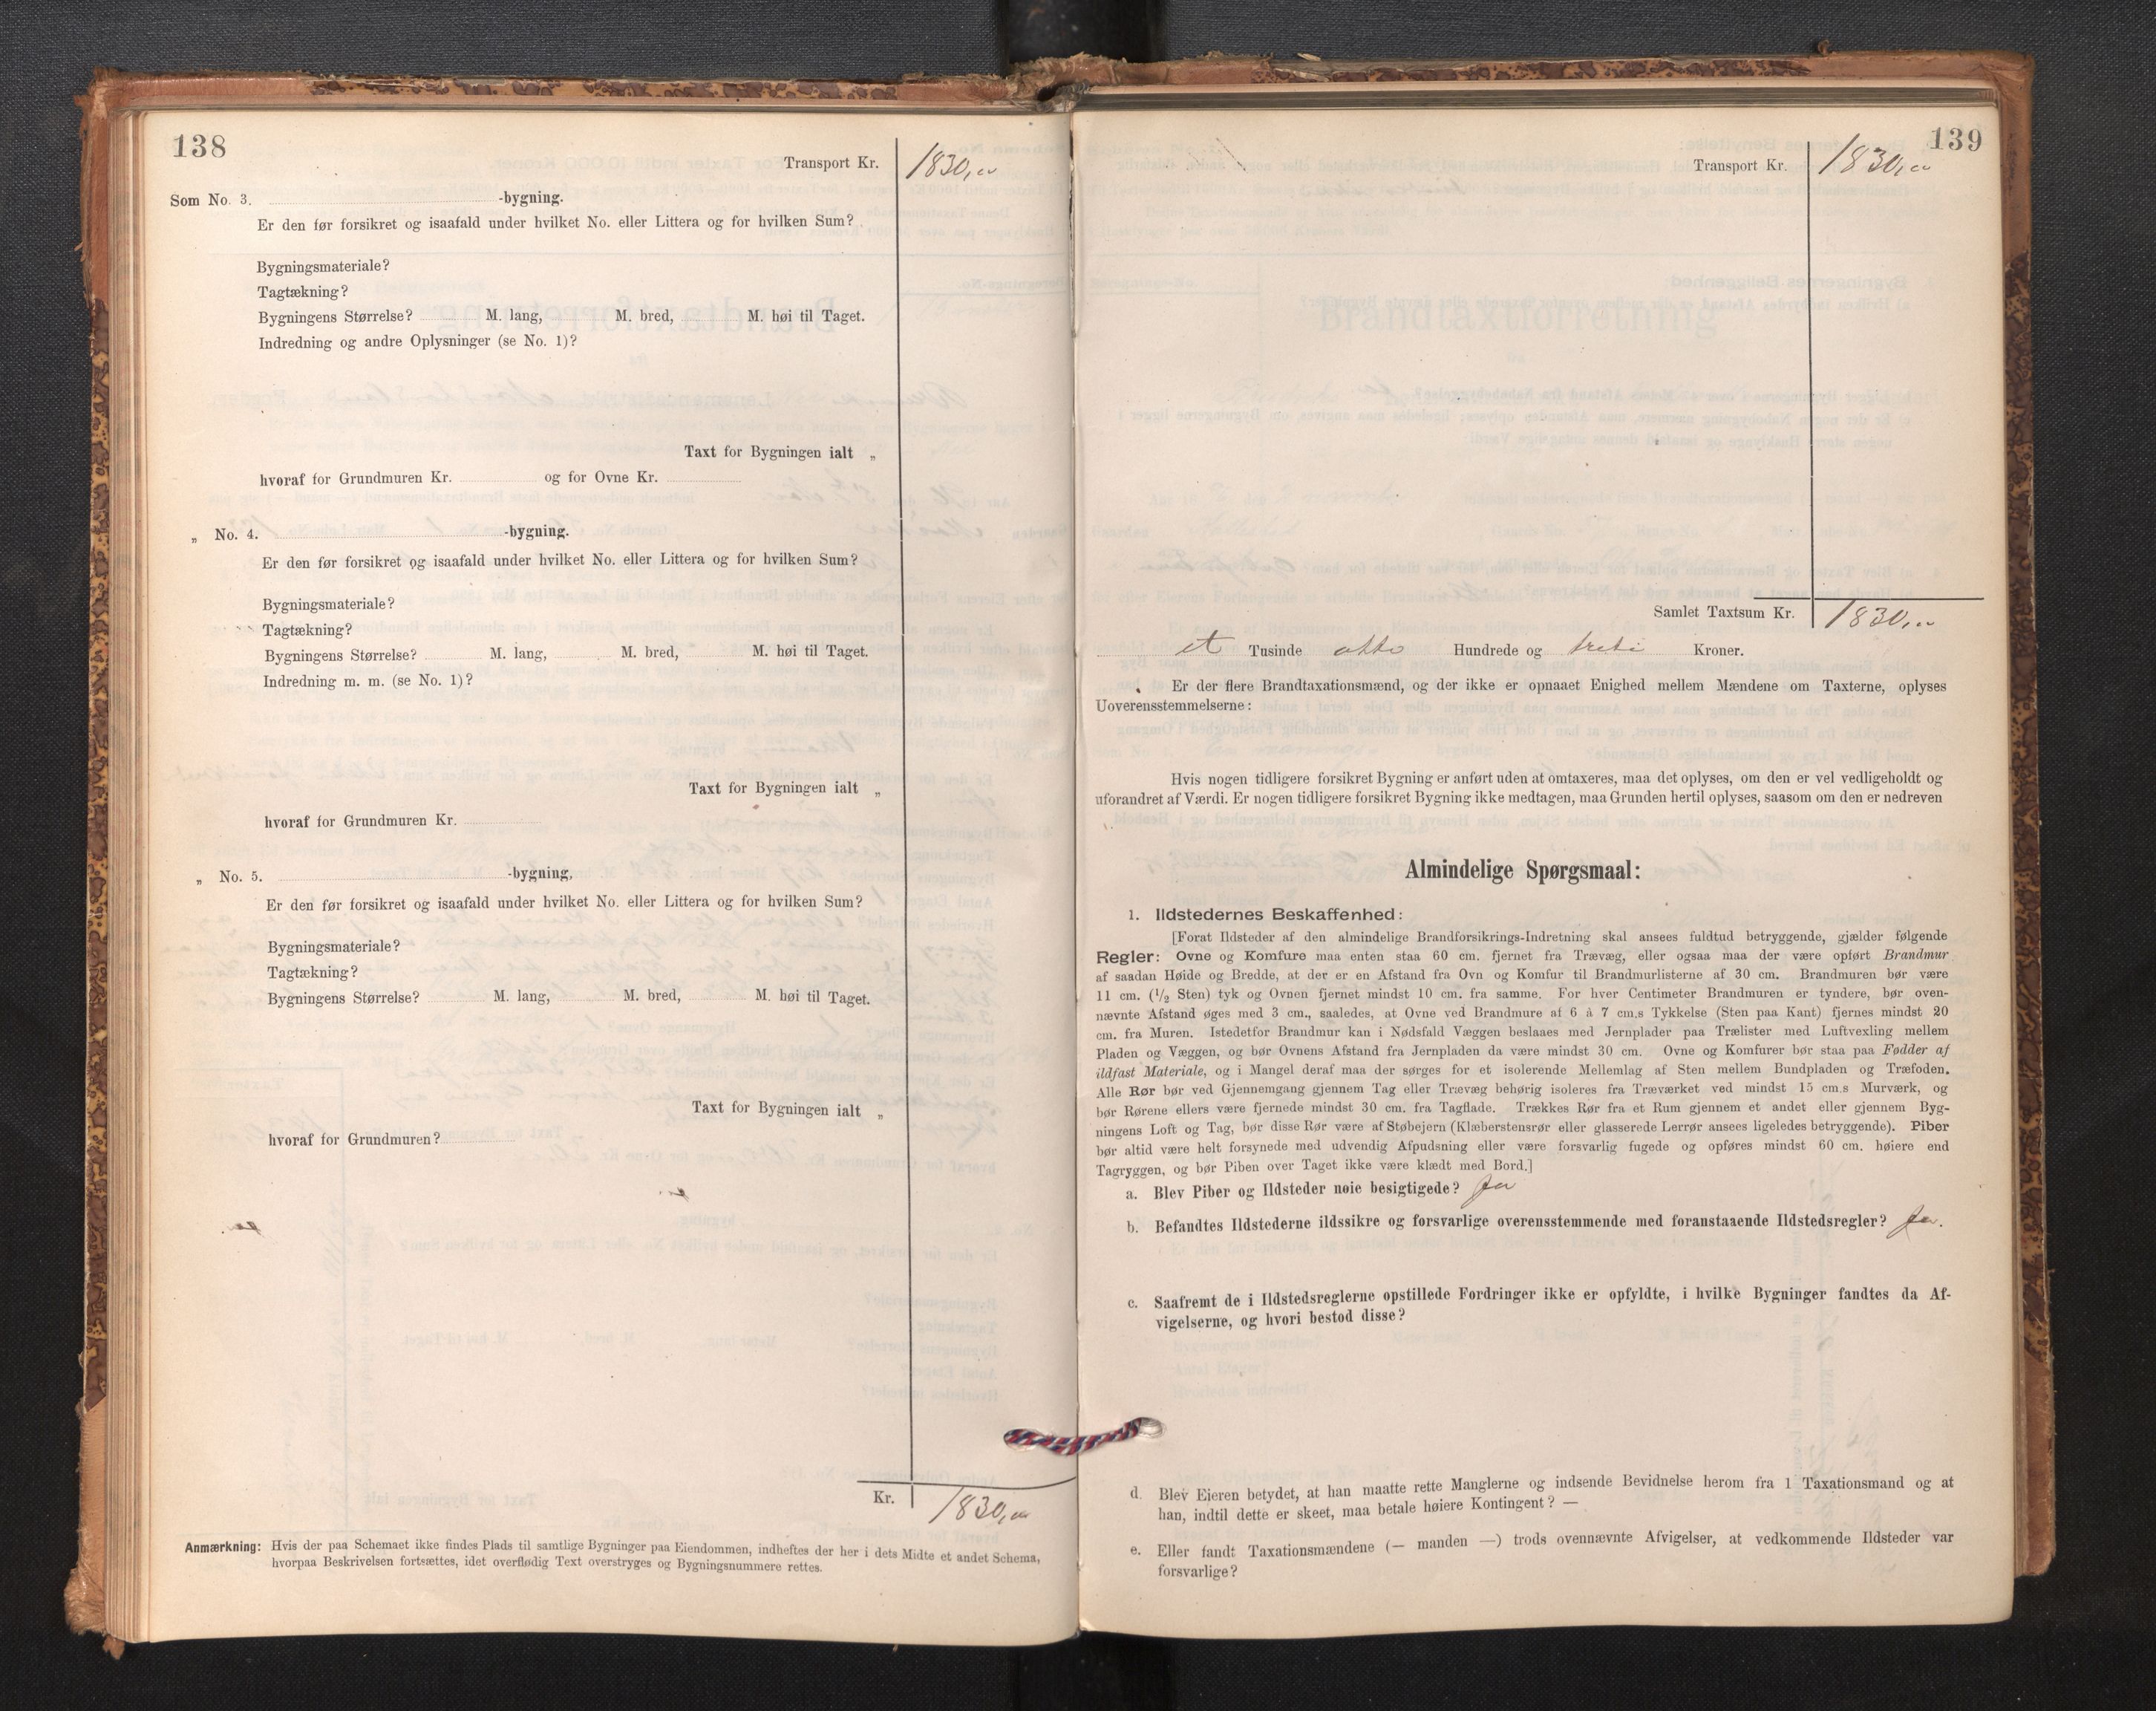 138
Transport Kr. 1830,00
Som No. 3. -bygning.
Er den før forsikret og isaafald under hvilket No. eller Littera og for hvilken Sum?
Bygningsmateriale?
Tagtækning?
Bygningens Størrelse? M. lang, M. bred, M. høi til Taget.
Indredning og andre Oplysninger (se No. 1)?
Taxt for Bygningen ialt „
hvoraf for Grundmuren Kr. og for Ovne Kr.
„ No. 4. -bygning.
Er den før forsikret og isaafald under hvilket No. eller Littera og for hvilken Sum?
Bygningsmateriale?
Tagtækning?
Bygningens Størrelse? M. lang, M. bred, M. høi til Taget.
Indredning m. m. (se No. 1)?
Taxt for Bygningen ialt „
hvoraf for Grundmuren Kr.
„ No. 5. -bygning,
Er den før forsikret og isaafald under hvilket No. eller Littera og for hvilken Sum?
Bygningsmateriale?
Tagtækning?
Bygningens Størrelse? M. lang, M. bred, M. høi til Taget.
Taxt for Bygningen ialt „
hvoraf for Grundmuren?
Kr. 1830,00
Anmærkning: Hvis der paa Schemaet ikke findes Plads til samtlige Bygninger paa Eiendommen, indheftes der her i dets Midte et andet Schema,
hvorpaa Beskrivelsen fortsættes, idet overflødig Text overstryges og Bygningsnummere rettes.
139
Transport Kr. 1830,00
Samlet Taxtsum Kr. 1830,00
et Tusinde otto Hundrede og treti Kroner.
Er der flere Brandtaxationsmænd, og der ikke er opnaaet Enighed mellem Mændene om Taxterne, oplyses
Uoverensstemmelserne:
Hvis nogen tidligere forsikret Bygning er anført uden at omtaxeres, maa det oplyses, om den er vel vedligeholdt og
uforandret af Værdi. Er nogen tidligere forsikret Bygning ikke medtagen, maa Grunden hertil oplyses, saasom om den er nedreven
Almindelige Spørgsmaal:
1. Ildstedernes Beskaffenhed:
[Forat Ildsteder af den almindelige Brandforsikrings-Indretning skal ansees fuldtud betryggende, gjælder følgende
Regler: Ovne og Komfure maa enten staa 60 cm. fjernet fra Trævæg, eller ogsaa maa der være opført Brandmur
af saadan Høide og Bredde, at der er en Afstand fra Ovn og Komfur til Brandmurlisterne af 30 cm. Brandmuren bør være
11 cm. (1/2 Sten) tyk og Ovnen fjernet mindst 10 cm. fra samme. For hver Centimeter Brandmuren er tyndere, bør oven-
nævnte Afstand øges med 3 cm., saaledes, at Ovne ved Brandmure af 6 à 7 cm.s Tykkelse (Sten paa Kant) fjernes mindst 20
cm. fra Muren. Istedetfor Brandmur kan i Nødsfald Væggen beslaaes med Jernplader paa Trælister med Luftvexling mellem
Pladen og Væggen, og bør Ovnens Afstand fra Jernpladen da være mindst 30 cm. Ovne og Komfurer bør staa paa Fødder af
ildfast Materiale, og i Mangel deraf maa der sørges for et isolerende Mellemlag af Sten mellem Bundpladen og Træfoden.
Alle Rør bør ved Gjennemgang gjennem Tag eller Trævæg behørig isoleres fra Træværket ved mindst 15 cm.s Murværk, og
bør Rørene ellers være fjernede mindst 30 cm. fra Tagflade. Trækkes Rør fra et Rum gjennem et andet eller gjennem Byg-
ningens Loft og Tag, bør disse Rør være af Støbejern (Klæberstensrør eller glasserede Lerrør ansees ligeledes betryggende). Piber
bør altid være helt forsynede med udvendig Afpudsning eller være forsvarlig fugede og opføres mindst 60 cm. høiere end
Tagryggen, og bør Piben over Taget ikke være klædt med Bord.]
a. Blev Piber og Ildsteder nøie besigtigede? Ja
b. Befandtes Ildstederne ildssikre og forsvarlige overensstemmende med foranstaaende Ildstedsregler? Ja.
c. Saafremt de i Ildstedsreglerne opstillede Fordringer ikke er opfyldte, i hvilke Bygninger fandtes da Af-
vigelserne, og hvori bestod disse?
d. Blev Eieren betydet, at han maatte rette Manglerne og indsende Bevidnelse herom fra 1 Taxationsmand og at
han, indtil dette er skeet, maa betale høiere Kontingent? —
e. Eller fandt Taxationsmændene (— manden —) trods ovennævnte Afvigelser, at vedkommende Ildsteder var
forsvarlige?